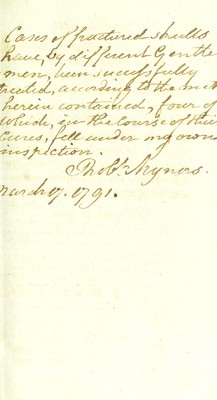 Cases of fractured skulls
have, by different Gentle
men, been successfully
treated, according to the met
herein contained, four of
which, in the course of their
cures, fell under my own
inspection.
Robt. Mynors.
March 17. 1791.